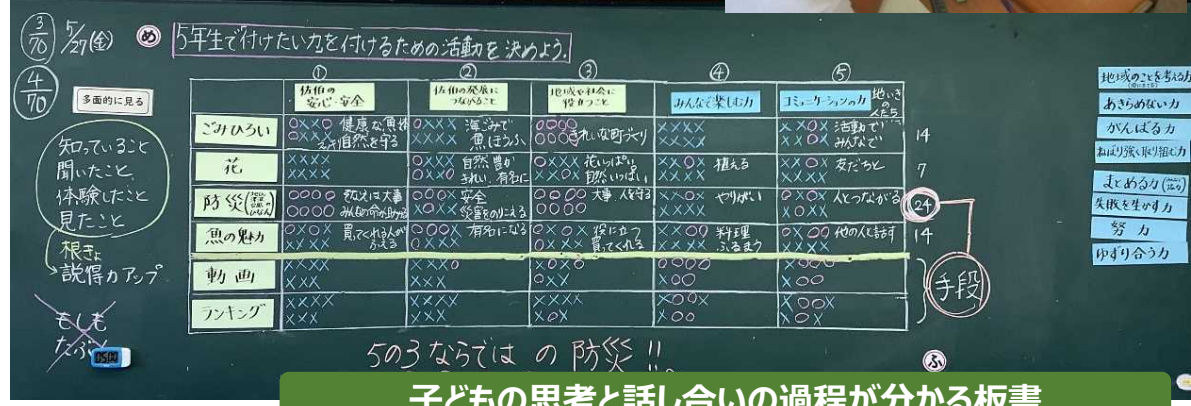 3/70 5/27(金) め 5年生で付けたい力を付けるための活動を決めよう.
4/70
多面的に見る
知っていること
聞いたこと
体験したこと
見たこと
根きょ
説得力アップ
もしも
たぶん
05:00
① ② ③ ④ ⑤
佐伯の安心・安全
佐伯の発展につながること
地域や社会に役立つこと
みんなで楽しむ力
コミュニケーションの力 地いきの人たち
ごみひろい
健康な魚
自然を守る
海ごみで
きれいな町づくり
活動で
みんなで
14
花
自然豊か
きれい、有名に
花いっぱい
自然いっぱい
植える
友だちと
7
防災
そなえは大事
みんなの命が助かる
安全
災害をのりこえる
大事 人を守る
やりがい
人とつながる
24
魚の魅力
買ってくれる人がふえる
有名になる
役に立つ
買ってくれる
料理
ふるまう
他の人と話す
14
動画
ランキング
手段
5の3ならではの防災!!
ふ
地域のことを考える力
あきらめない力
がんばる力
ねばり強く取り組む力
まとめる力
失敗を生かす力
努力
ゆずり合う力
子どもの思考と話し合いの過程が分かる板書